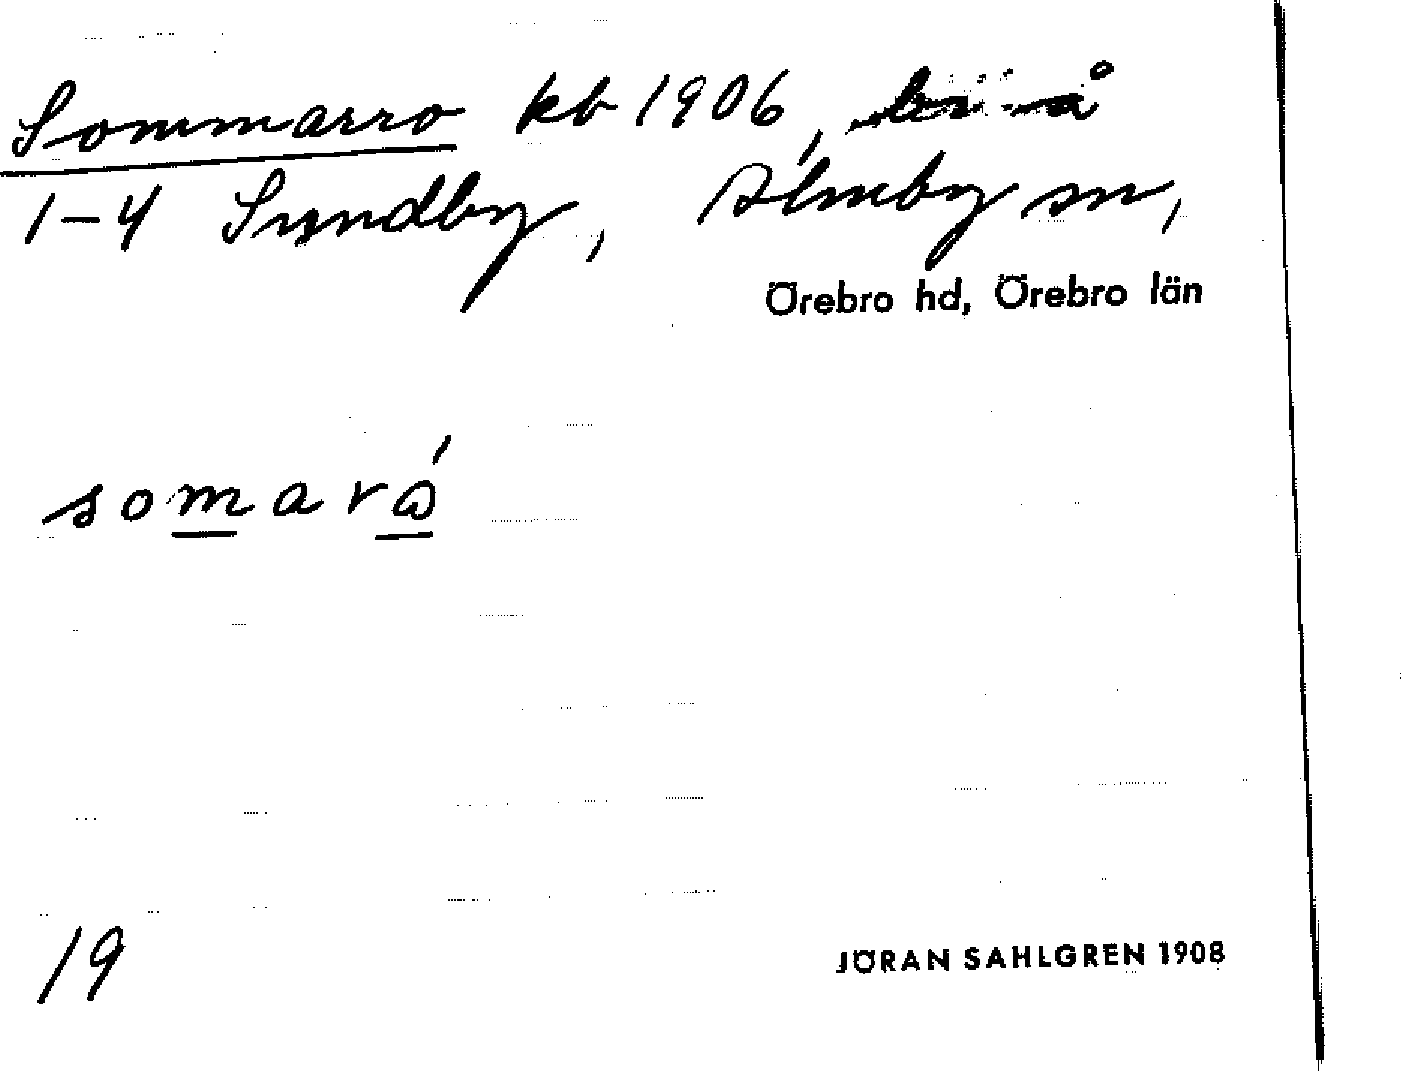 Sommarro kb 1906, å
1-4 Sundby, Almby sn,
Örebro hd, Örebro län
somarώ
19
JÖRAN SAHLGREN 1908